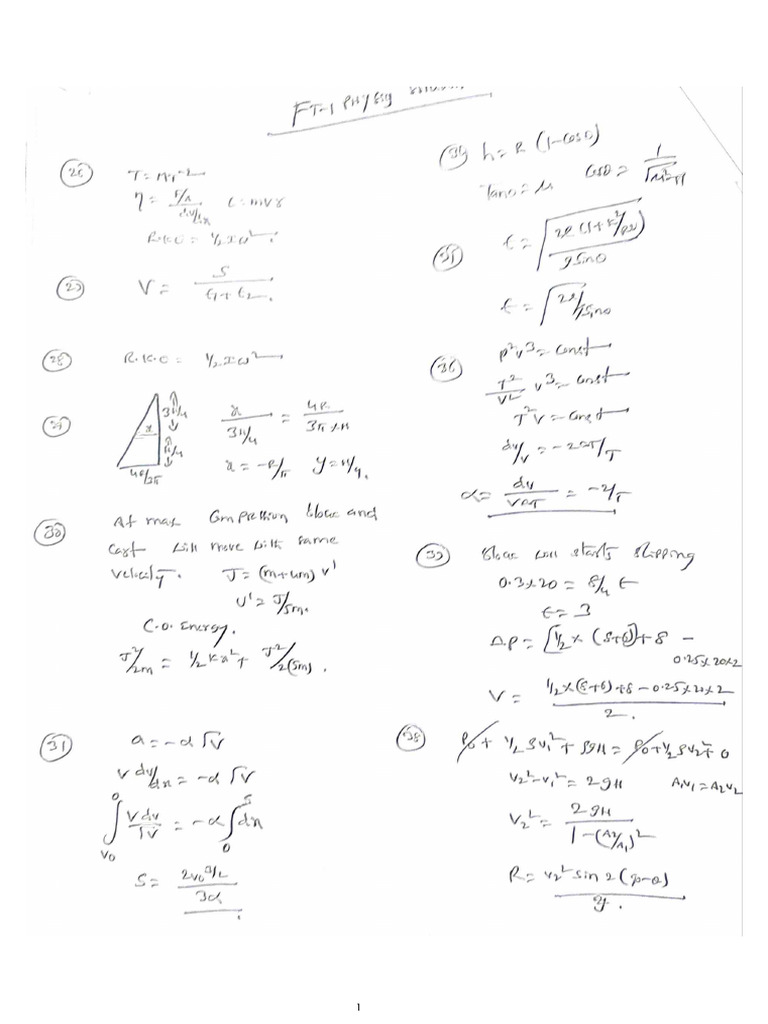 FT-1 Physics
(26) T = Mr⁻²
η = F/A / dv/dx L = mvr
R.K.E = ½ I ω²
(27) V = S / t₁ + t₂
(28) R.K.E = ½ I ω²
(29) 3H/4 x H/4 4R/3π
x / 3H/4 = 4R / 3π × H
x = -R/π y = H/4.
(30) At max Compression block and
cart will move with same
velocity. J = (m+4m) v'
v' = J/5m.
C.O. Energy.
J²/2m = ½ K x² + J²/2(5m).
(31) a = -α √v
v dv/dx = -α √v
∫ v₀ 0 v dv / √v = -α ∫ 0 S dx
S = 2v₀^3/2 / 3α
(34) h = R (1 - cosθ)
Tanθ = μ cosθ = 1 / √μ²+1
(35) t = √ 2l (1 + K²/R²) / g sinθ
t = √ 2l / g sinθ
(36) P²V³ = const
T²/V² V³ = const
T²V = const
dv/v = -2dT/T
α = dv / VdT = -2/T
(37) Block will starts slipping
0.3×20 = 8/4 t
t = 3
ΔP = [½ × (8+6)] + 8 -
0.25×20×2
V = ½ × (8+6) + 8 - 0.25×20×2 / 2.
(38) P₀ + ½ ρv₁² + ρgH = P₀ + ½ ρv₂² + 0
v₂² - v₁² = 2gH A₁v₁ = A₂v₂
v₂² = 2gH / 1 - (A₂/A₁)²
R = v₂² sin 2(90-θ) / g.
1